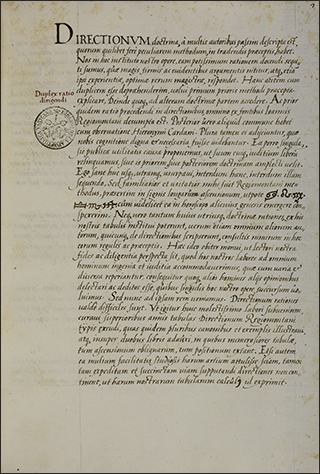 DIRECTIONVM doctrina, à multis autoribus passim descripta est,
quorum quilibet ferè peculiarem methodum in tradendis praeceptis habet.
Nos in hoc instituto nostro opere, eam potissimum rationem docendi sequu
ti sumus, quae magis firmis ac euidentibus argumentis nititur, atq, etia
ipsi experientiae, optimae rerum magistrae, respondet. Hanc autem cum
Duplex ratio
dirigendi
duplicem esse deprahenderim, uolui primum prioris methodi praecepta
explicare. Deinde quoq, ad alteram doctrinae partem accedere. Ac prior
quidem ratio procedendi in directionibus, omnino ex fontibus Ioannis
Regiomontani deriuata est. Posterior uero aliquid commune habet
cum obseruatione Hieronymi Cardani. Plura tamen ei adijcientur, quae
nobis cognitione digna et necessaria fuisse uidebantur. Ea porro singula,
in publica utilitatis causa proponentur, ut suum cuiq, iuditium liberũ
relinquamus, siue is priorem siue posteriorem doctrinam amplecti uelit.
Ego sane hac usq, utranq, usurpaui, interdum hanc, interdum illam
sequendo. Sed familiarior et usitatior mihi fuit Regiomontani me-
thodus, praeterim in signis longarum ascensionum, utpote
cum uidelicet ea in horoscopo alicuius genesis emergere con
spexerim. Neq, uero tantum huius utriusq, doctrinae rationes, ex his
nostris tabulis institui poterunt, uerum etiam omnium aliorum au,
torum, quicunq, de directionibus scripserunt, consultis nimirum in hoc
eorum regulis ac praeceptis. Hac ideo obiter monui, ut lectori nostra
fides ac diligentia perspecta sit, quod hos nostros labores ad omnium
hominum ingenia et iuditia accommodauerimus, quae cum uaria et
diuersa aperiantur, consequitur quoq, alios homines alijs opinionibus
delectari ac deditos esse, quibus singulis hoc nostro opere, succursum uo,
luimus. Sed nunc ad ipsam rem ueniamus. Directionum rationes
ualde difficiles sunt. Vt igitur huic molestissimo labori subueniam,
cerauus superioribus annis tabulas Directionum Regiomontani
typis excudi, quas quidem pluribus canonibus et exemplis illustraui,
atq, insuper duobus libris adauxi, in quibus uberiores tabulae,
tum ascensionum obliquarum, tum positionum extant. Etsi autem
ea multum facilitatis studiosis harum artium attulisse sciam, tamen
tam expeditam et succinctam uiam supputandi directiones non con,
tinent, ut harum nostrarum tabularum calculus id exprimit.